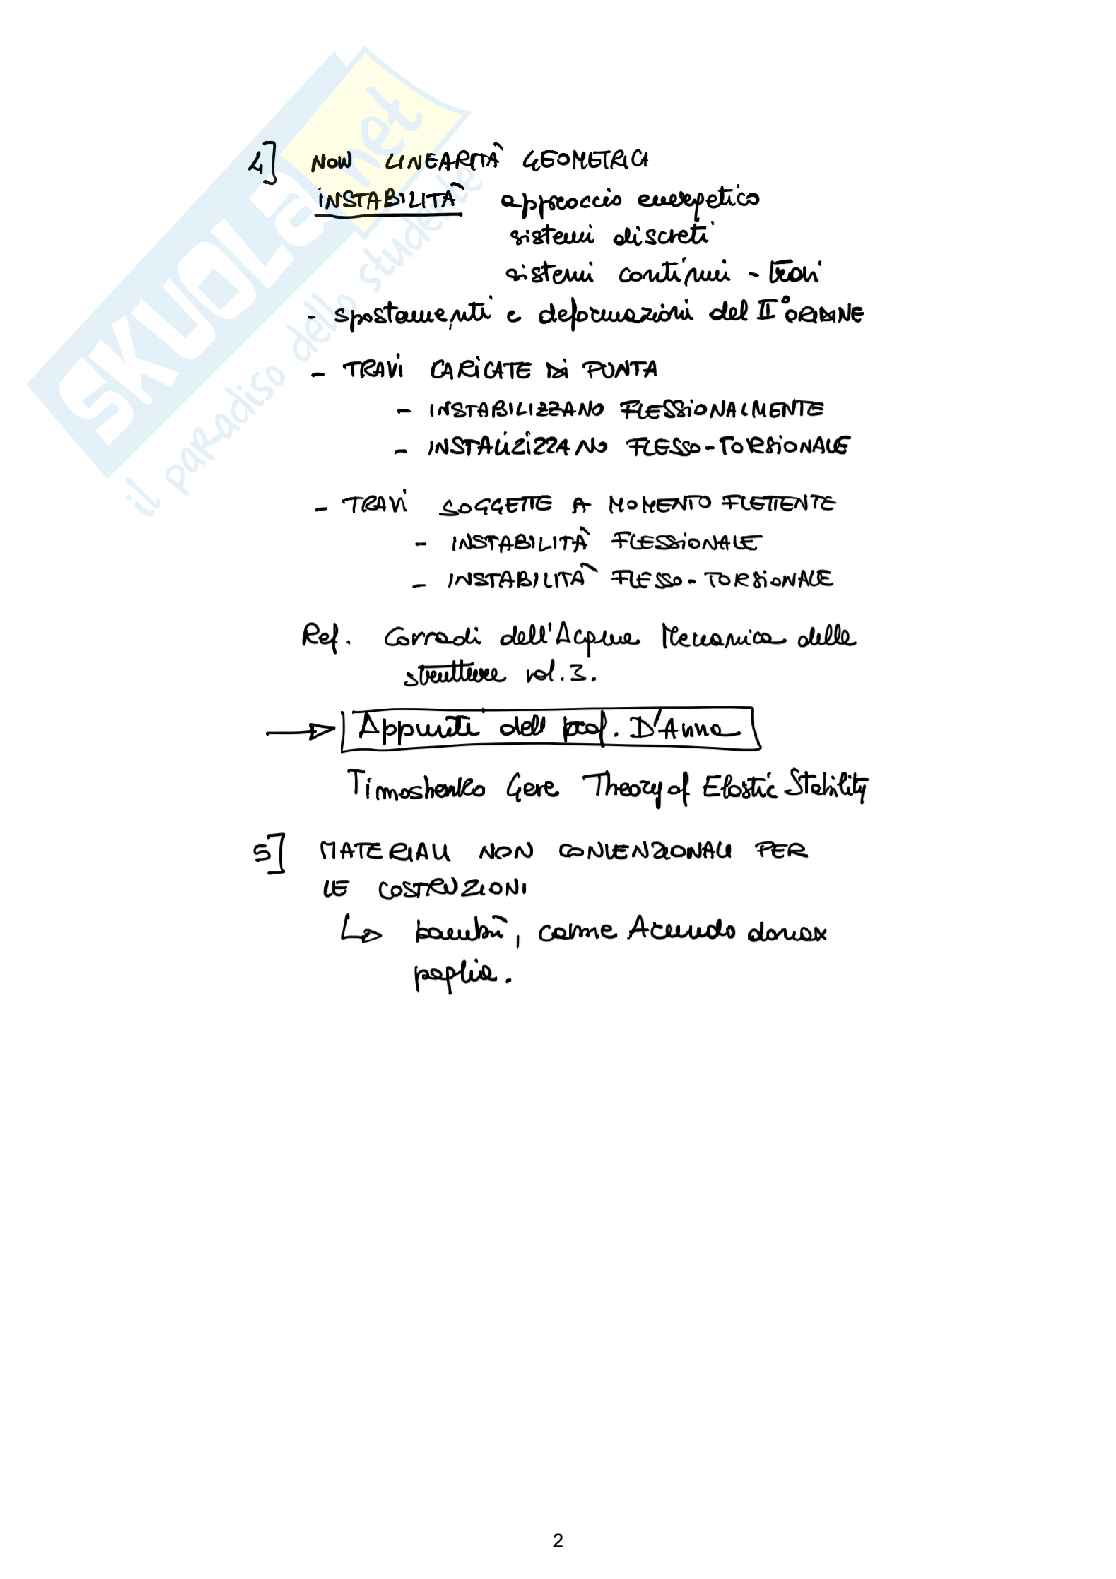 SKUOLA.net
il paradiso dello studente
4] NON LINEARITÀ GEOMETRICI
INSTABILITÀ approccio energetico
sistemi discreti
sistemi continui - travi
- spostamenti e deformazioni del II° ORDINE
- TRAVI CARICATE DI PUNTA
- INSTABILIZZANO FLESSIONALMENTE
- INSTALIZIZZANO FLESSO-TORSIONALE
- TRAVI SOGGETTE A MOMENTO FLETTENTE
- INSTABILITÀ FLESSIONALE
- INSTABILITÀ FLESSO-TORSIONALE
Ref. Corradi dell'Acqua Meccanica delle
strutture vol. 3.
→ Appunti dell prof. D'Anna
Timoshenko Gere Theory of Elastic Stability
5] MATERIALI NON CONVENZIONALI PER
LE COSTRUZIONI
↳ bambù, canne Arundo donax
paglia.
2